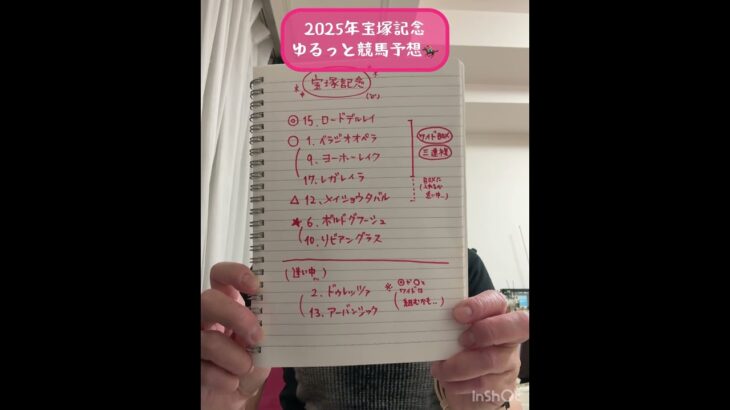 2025年宝塚記念
ゆるっと競馬予想🏇
宝塚記念
◎ 15. ロードデルレイ
○ 1. ベラジオオペラ
9. ヨーホーレイク
17. レガレイラ
△ 12. メイショウタバル
★ 6. ボルドグフーシュ
10. リビアングラス
ワイドBOX
三連複
BOXに
入れるか
迷い中…
(迷い中)
2. ドゥレッツァ
13. アーバンシック
※ ◎か○と
ワイドは
組むかも…
InShOt